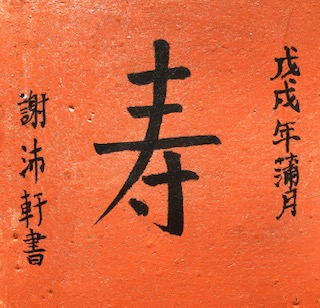 戊戌年蒲月
寿
謝沛軒書